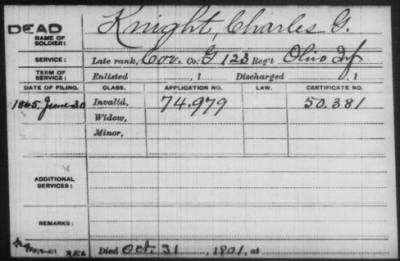 DEAD Knight, Charles G.
NAME OF SOLDIER:
SERVICE: Late rank, Cor. Co. G 123 Reg't Ohio Inf
TERM OF SERVICE: Enlisted , 1 Discharged , 1
DATE OF FILING. CLASS. APPLICATION NO. LAW. CERTIFICATE NO.
1865 June 20 Invalid, 74.979 50.381
Widow,
Minor,
ADDITIONAL SERVICES:
REMARKS:
Died Oct. 31 , 1901, at